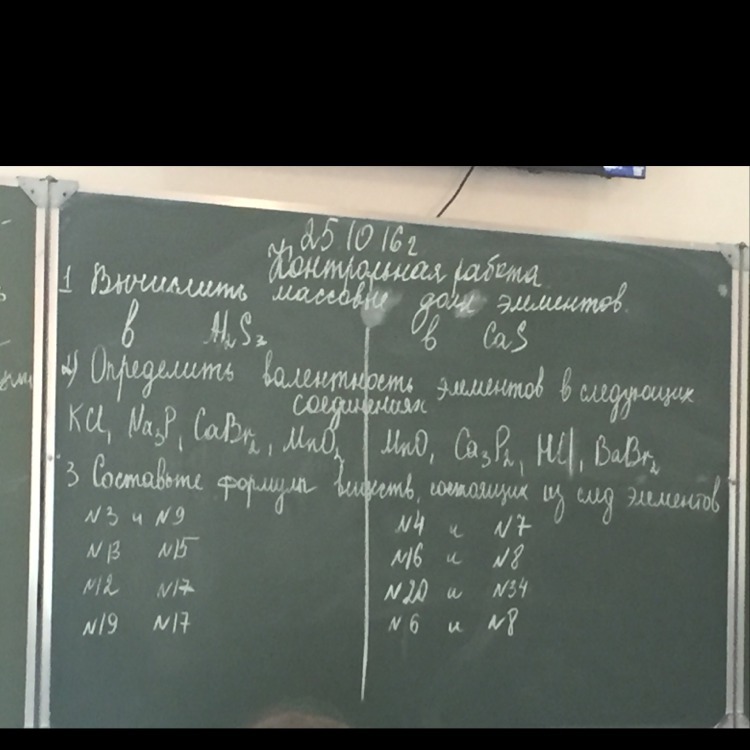 25 10 16г
Контрольная работа
1 Вычислить массовые доли элементов
в Al₂S₃ в CaS
2) Определить валентность элементов в следующих
соединениях
KCl, Na₃P, CaBr₂, MnO₂ MnO, Ca₃P₂, HCl, BaBr₂
3 Составьте формулы веществ, состоящих из след элементов
N3 и N9 N4 и N7
N13 N15 N16 и N8
N12 N17 N20 и N34
N19 N17 N6 и N8